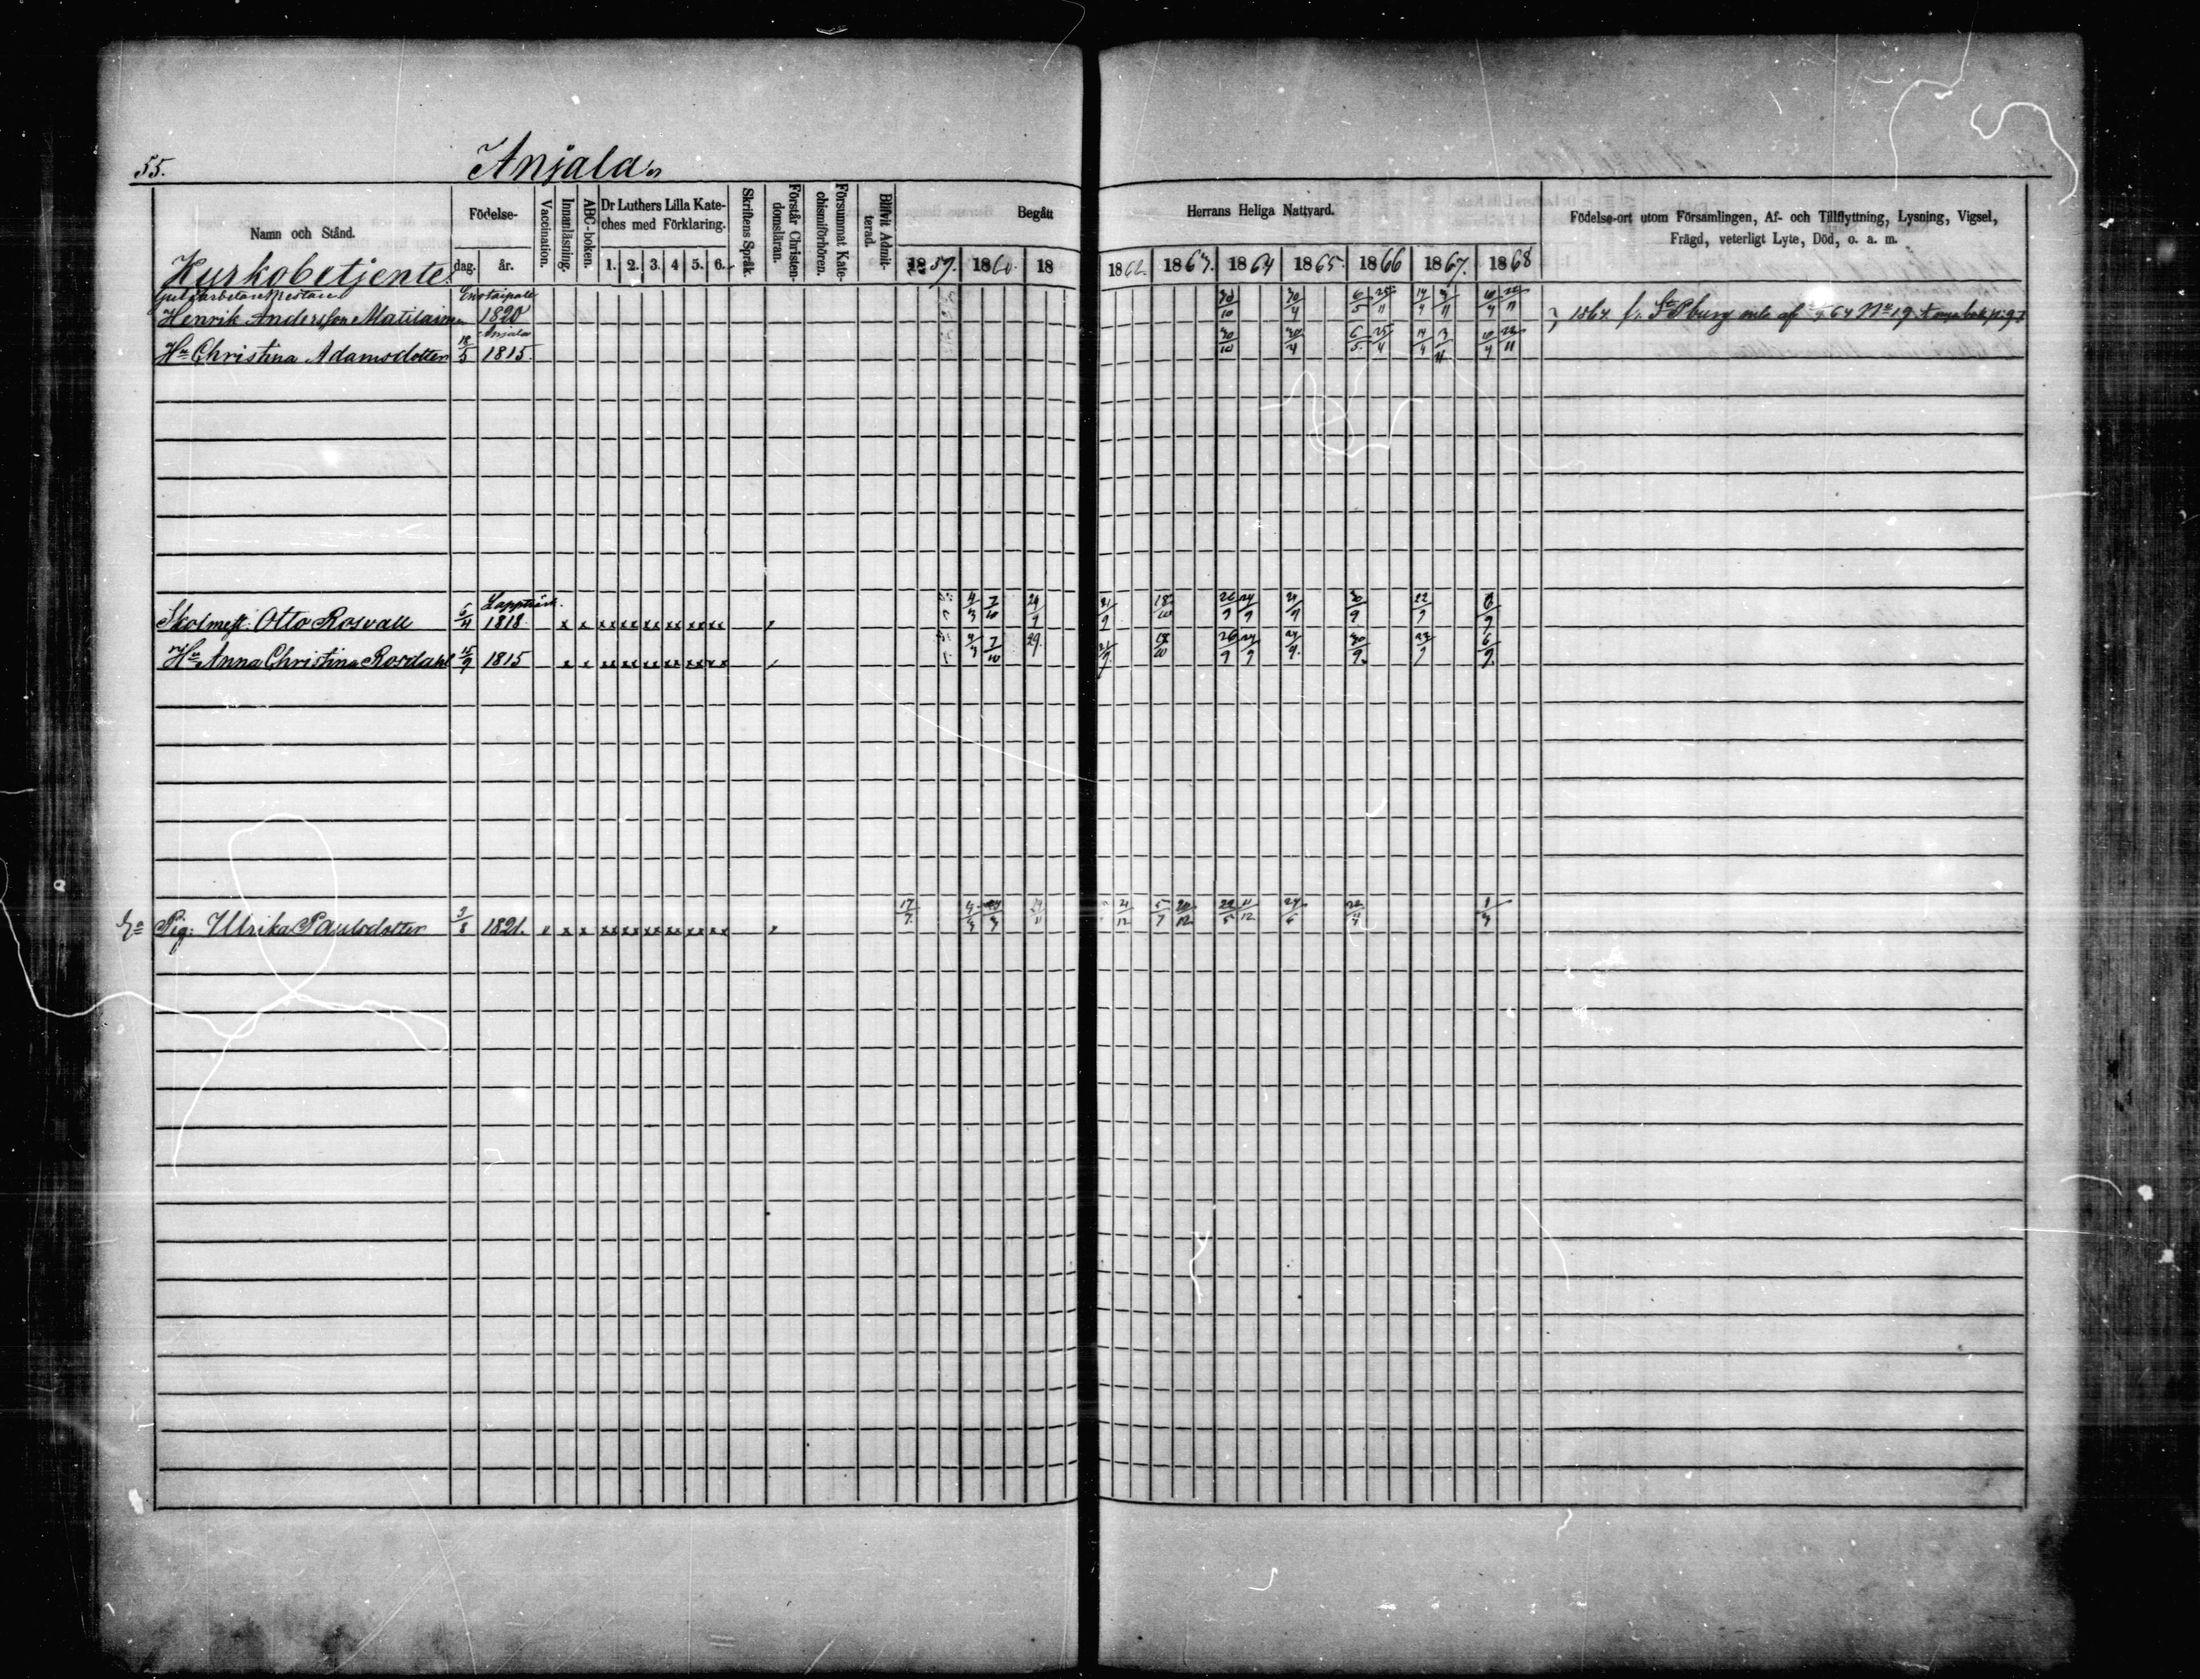 55.
Anjala
Namn och Stånd.
Födelse-
dag.
år.
Vaccination.
Innanläsning.
ABC-boken.
Dr Luthers Lilla Kate-
ches med Förklaring.
1. 2. 3. 4 5. 6.
Skriftens Språk.
Förstår Christen-
domsläran.
Försummat Kate-
chismiförhören.
Blifvit Admit-
terad.
Begått
Herrans Heliga Nattvard.
1859. 1860. 18
1862. 1863. 1864 1865. 1866 1867. 1868
Födelse-ort utom Församlingen, Af- och Tillflyttning, Lysning, Vigsel,
Frägd, veterligt Lyte, Död, o. a. m.
Kyrkobetjente.
Henrik Andersson Matilainen 1820 30/10 30/4 6/5 25/11 14/4 3/11 10/4 22/11 1864 fr. St Pburg
Anjala
Hu Christina Adamsdotter 18/5 1815. 30/10 30/4 6/5 25/4 14/4 3/11 10/4 22/11
Lappträsk.
Skolmest. Otto Rosvall 6/11 1818. x x xx xx xx xx xx xx 4/3 7/10 29/9 21/9 18/10 26/9 24/9 24/9 30/9 22/9 6/9
Hu Anna Christina Rosdahl 15/9 1815 x x xx xx xx xx xx xx 4/3 7/10 29 21/9 18/10 26/9 24/9 24/9 30/9 22/9 6/9
Pig. Ulrika Paulsdotter 3/8 1821. x x xx xx xx xx xx xx 17/7 4/3 21/12 5/7 20/12 22/5 11/12 1/3